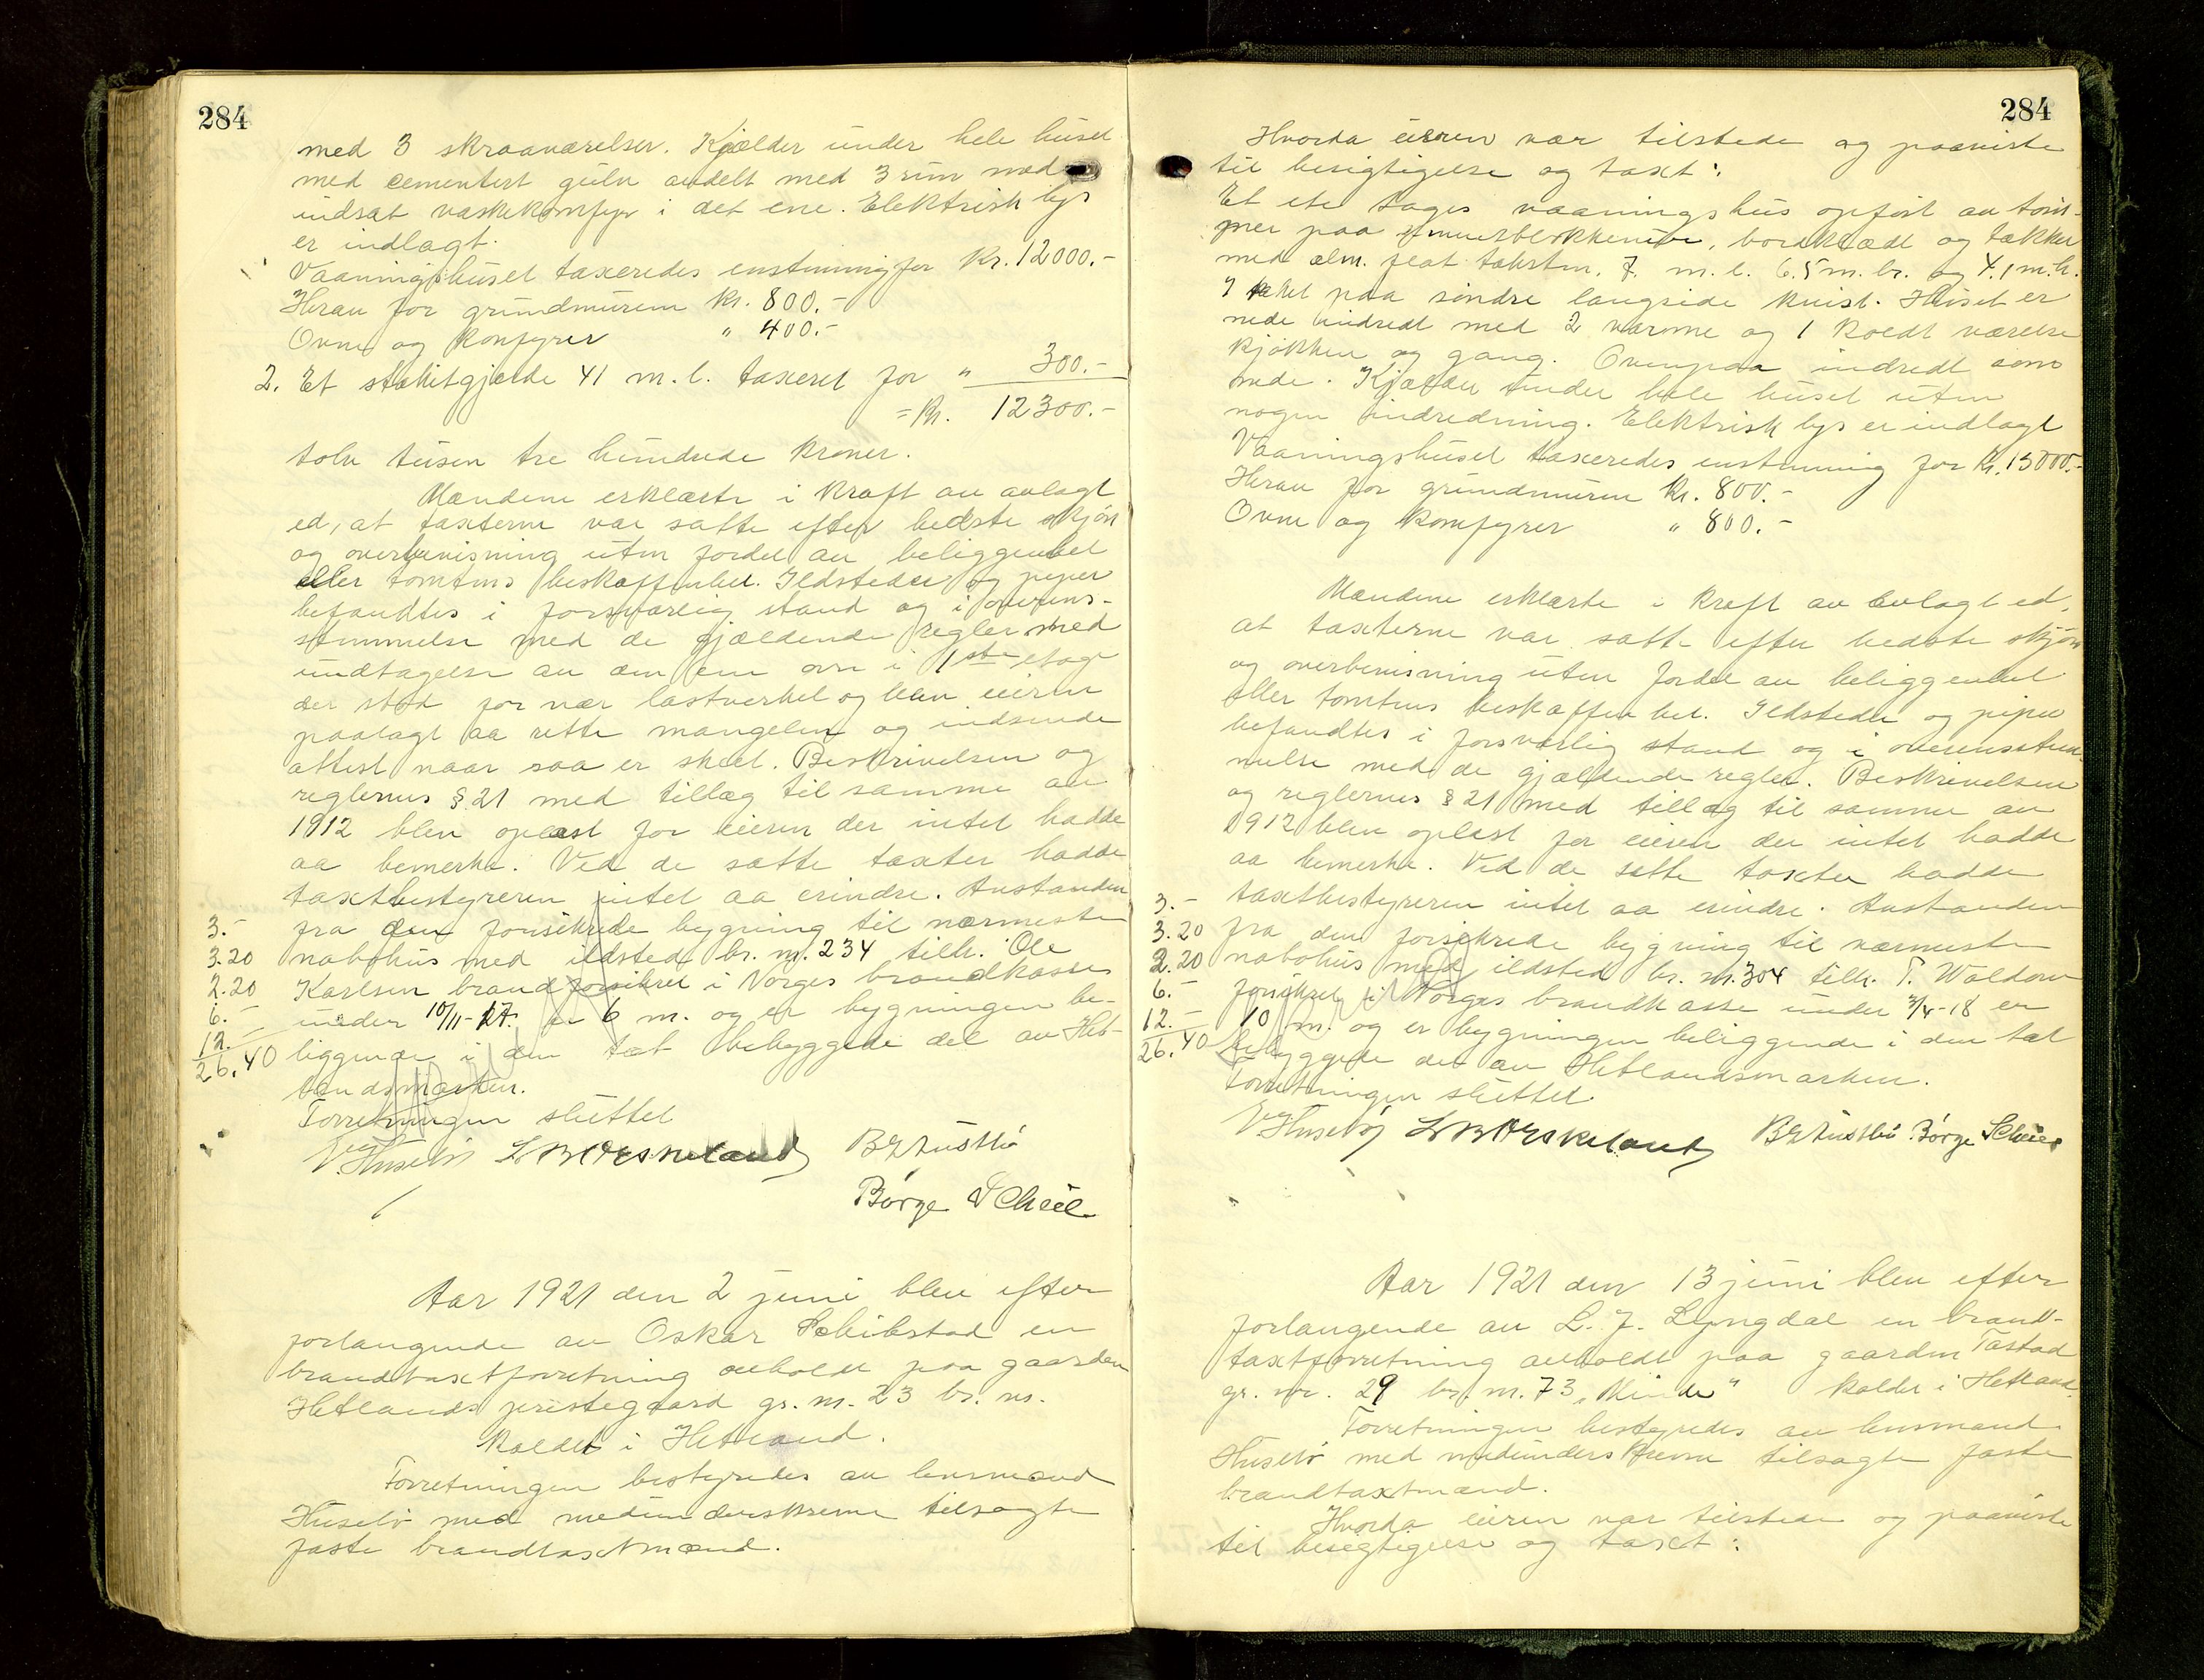 284
med 3 skraaværelser. Kjælder under hele huset
med cementert gulv avdelt med 3 rum med
indsat vaskekomfyr i det ene. Elektrisk lys
er indlagt.
Vaaningshuset taxeredes enstemmig for Kr. 12000.-
Herav for grundmuren Kr. 800.-
Ovne og komfyrer " 400.-
2. Et stakitgjærde 41 m. l. taxeret for " 300.-
= Kr. 12300.-
tolv tusen tre hundrede kroner.
Mændene erklærte i kraft av avlagt
ed, at taxterne var satte efter bedste skjøn
og overbevisning uten fordel av beliggenhet
eller tomtens beskaffenhet. Ildsteder og piper
befandtes i forsvarlig stand og i overens-
stemmelse med de gjældende regler med
undtagelse av den ene ovn i 1ste etage
der stod for nær lastverket og blev eieren
paalagt aa rette mangelen og indsende
attest naar saa er skeet. Beskrivelsen og
reglernes § 21 med tillæg til samme av
1912 blev oplæst for eieren der intet hadde
aa bemerke. Ved de satte taxter hadde
taxtbestyreren intet aa erindre. Avstanden
3.- fra den forsikrede bygning til nærmeste
3.20 nabohus med ildsted br. nr. 234 tilh. Ole
2.20 Karlsen brandforsikret i Norges brandkasse
6.- under 10/11-17. er 6 m. og er bygningen be-
12.- liggende i den tæt bebyggede del av Het-
26.40 landsmarken.
Forretningen sluttet
Husebø L B Orskeland B E Austbø
Børge Scheie
Aar 1921 den 2 juni blev efter
forlangende av Oskar Schibstad en
brandtaxtforretning avholdt paa gaarden
Hetlands prestegaard gr. nr. 23 br. nr.
kaldet i Hetland.
Forretningen bestyredes av lensmand
Husebø med medunderskrevne tilsagte
faste brandtaxtmænd.
284
Hvorda eieren var tilstede og paaviste
til besigtigelse og taxt:
Et etc tages vaaningshus opført av tøm-
mer paa murblokkemur, bordklædt og tækket
med alm. flat taksten, 7. m. l. 6.5 m. br. og 4.1 m. h.
I taket paa søndre langside kvist. Huset er
nede indredt med 2 varme og 1 koldt værelse
kjøkken og gang. Ovenpaa indredt som
nede. Kjælder under hele huset uten
nogen indredning. Elektrisk lys er indlagt
Vaaningshuset taxeredes enstemmig for Kr. 15000.-
Herav for grundmuren Kr. 800.-
Ovne og komfyrer " 800.-
Mændene erklærte i kraft av avlagt ed,
at taxterne var satte efter bedste skjøn
og overbevisning uten fordel av beliggenhet
eller tomtens beskaffenhet. Ildsteder og piper
befandtes i forsvarlig stand og i overensstem-
melse med de gjældende regler. Beskrivelsen
og reglernes § 21 med tillæg til samme av
1912 blev oplæst for eieren der intet hadde
aa bemerke. Ved de satte taxter hadde
3.- taxtbestyreren intet aa erindre. Avstanden
3.20 fra den forsikrede bygning til nærmeste
2.20 nabohus med ildsted br. nr. 304 tilh. T. Waldow
6.- forsikret i Norges brandkasse under 3/4-18 er
12.- 10 m. og er bygningen beliggende i den tæt
26.40 bebyggede del av Hetlandsmarken.
Forretningen sluttet.
Husebø L B Orskeland B E Austbø Børge Scheie
Aar 1921 den 13 juni blev efter
forlangende av L. J. Lyngdal en brand-
taxtforretning avholdt paa gaarden Tastad
gr. nr. 29 br. nr. 73 "Minde" kaldet i Hetland.
Forretningen bestyredes av lensmand
Husebø med medunderskrevne tilsagte faste
brandtaxtmænd.
Hvorda eieren var tilstede og paaviste
til besigtigelse og taxt: